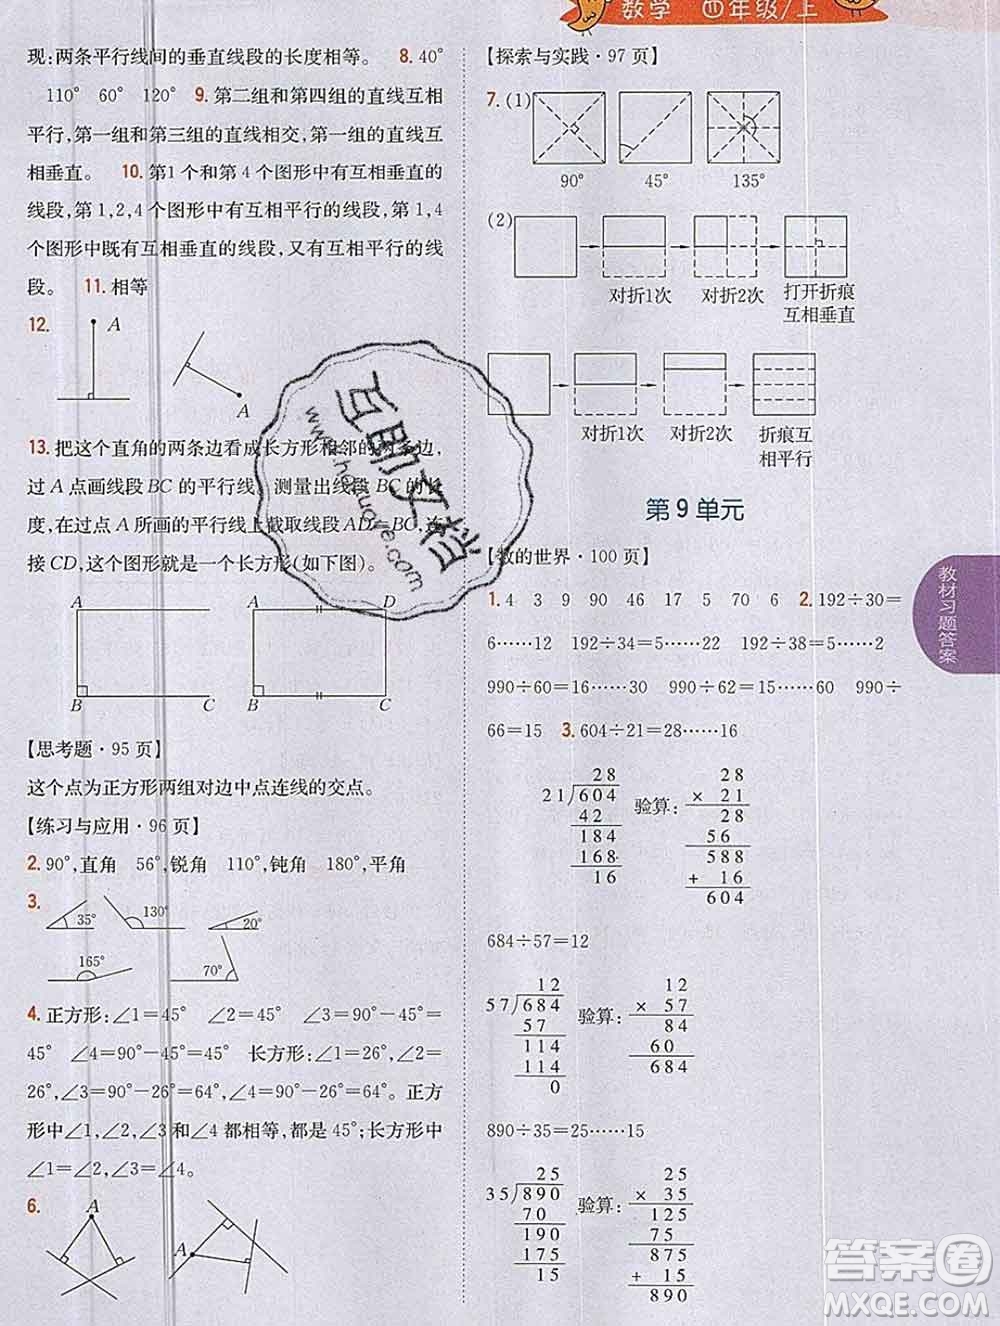 数学 四年级/上
现:两条平行线间的垂直线段的长度相等。 8. 40°
110° 60° 120° 9. 第二组和第四组的直线互相
平行,第一组和第三组的直线相交,第一组的直线互
相垂直。 10. 第1个和第4个图形中有互相垂直的
线段,第1,2,4个图形中有互相平行的线段,第1,4
个图形中既有互相垂直的线段,又有互相平行的线
段。 11. 相等
12. A A
13. 把这个直角的两条边看成长方形相邻的两条边,
过A点画线段BC的平行线,测量出线段BC的长
度,在过点A所画的平行线上截取线段AD=BC,连
接CD,这个图形就是一个长方形(如下图)。
A A D
B C B C
【思考题·95页】
这个点为正方形两组对边中点连线的交点。
【练习与应用·96页】
2. 90°,直角 56°,锐角 110°,钝角 180°,平角
3. 35° 130° 20°
165° 70°
4. 正方形:∠1=45° ∠2=45° ∠3=90°-45°=
45° ∠4=90°-45°=45° 长方形:∠1=26° ∠2=
26° ∠3=90°-26°=64° ∠4=90°-26°=64°。正方
形中∠1、∠2、∠3和∠4都相等,都是45°;长方形中
∠1=∠2,∠3=∠4。
6. A A
【探索与实践·97页】
7. (1)
90° 45° 135°
(2)
对折1次 对折2次 打开折痕
互相垂直
对折1次 对折2次 折痕互
相平行
第9单元
【数的世界·100页】
1. 4 3 9 90 46 70 70 6 2. 192÷30=
6……12 192÷34=5……22 192÷38=5……2
990÷60=16……30 990÷62=15……60 990÷
66=15 3. 604÷21=28……16
28
21 604
42
184
168
16
验算: 28
× 21
28
56
588
+ 16
604
684÷57=12
12
57 684
57
114
114
0
验算: 12
× 57
84
60
684
890÷35=25……15
25
35 890
70
190
175
15
验算: 25
× 35
125
75
875
+ 15
890
教材习题答案
互助文档
www.hozuove.com
答案圈
MXQE.COM